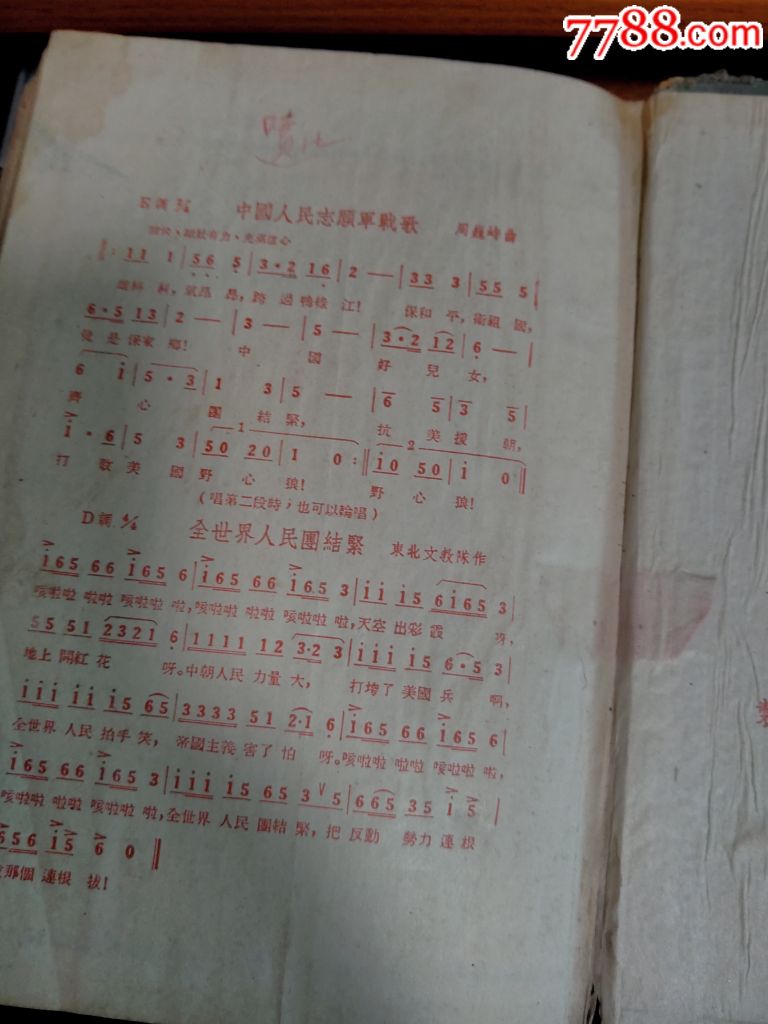 7788.com
E調 2/4 中國人民志願軍戰歌 周巍峙曲
雄壯、 有力、充滿信心
1 1 1 | 5 6 5 | 3·2 1 6 | 2 — | 3 3 3 | 5 5 5 |
雄糾糾,氣昂昂,跨過鴨綠江! 保和平,衛祖國,
6·5 1 3 | 2 — | 3 — | 5 — | 3·2 1 2 | 6 — |
就是保家鄉! 中國好兒女,
6 i | 5·3 | 1 3 | 5 — | 6 5 | 3 5 |
齊心團結緊, 抗美援朝,
i·6 | 5 3 | 5 0 2 0 | 1 0 :‖ i 0 5 0 | i 0 ‖
打敗美國野心狼! 野心狼!
(唱第二段時,也可以輪唱)
D調 4/4 全世界人民團結緊 東北文教隊作
i 6 5 6 6 i 6 5 6 | i 6 5 6 6 i 6 5 3 | i i i 5 6 i 6 5 3 |
咳啦啦 啦啦 咳啦啦 啦,咳啦啦 啦啦 咳啦啦 啦,天空 出彩 霞 呀,
5 5 5 1 2 3 2 1 6 | 1 1 1 1 1 2 3·2 3 | i i i i 5 6·5 3 |
地上 開紅 花 呀。中朝人民 力量 大, 打垮了 美國 兵 啊,
i i i i i i 5 6 5 | 3 3 3 3 5 1 2·1 6 | i 6 5 6 6 i 6 5 6 |
全世界 人民 拍手 笑, 帝國主義 害了 怕 呀。咳啦啦 啦啦 咳啦啦 啦,
i 6 5 6 6 i 6 5 3 | i i i i 5 6 5 3 V 5 | 6 6 5 3 5 i 5 |
咳啦啦 啦啦 咳啦啦 啦,全世界 人民 團結 緊,把 反動 勢力 連根
5 5 6 i 5 6 0 ‖
那個 連根 拔!